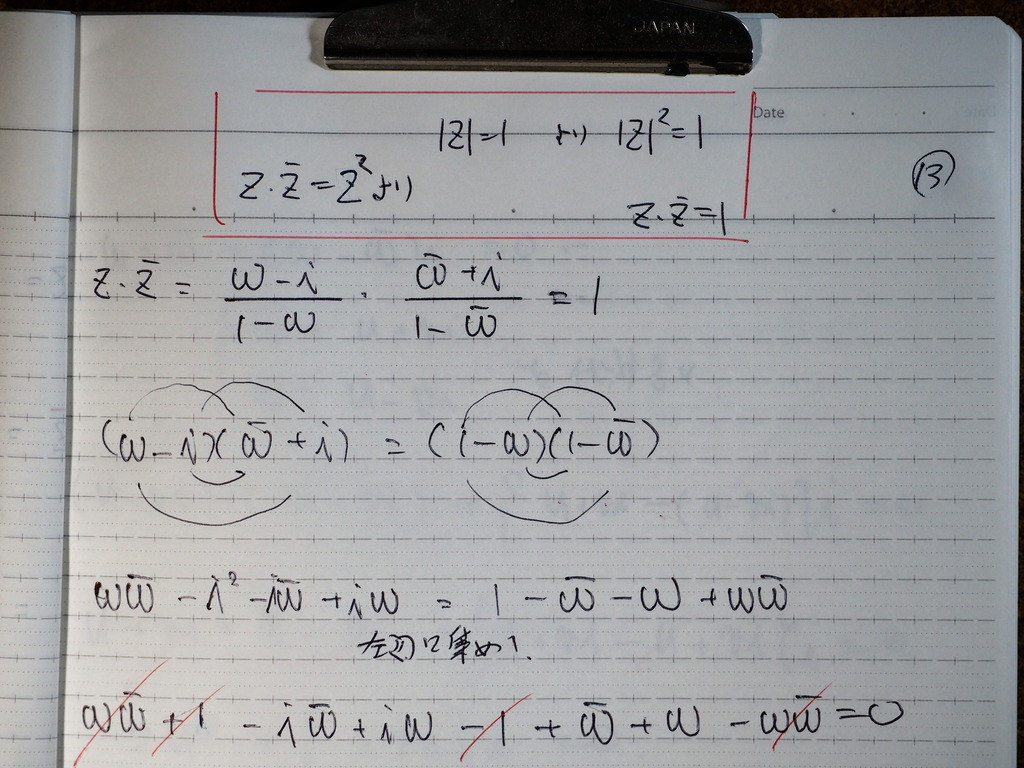 JAPAN
Date
|z|=1 より |z|²=1
z・z̄=z²より
z・z̄=1
⑬
z・z̄ = (ω-i)/(1-ω) ・ (ω̄+i)/(1-ω̄) = 1
(ω-i)(ω̄+i) = (1-ω)(1-ω̄)
ωω̄ - i² - iω̄ + iω = 1 - ω̄ - ω + ωω̄
左辺に集めて.
ωω̄ + 1 - iω̄ + iω - 1 + ω̄ + ω - ωω̄ = 0